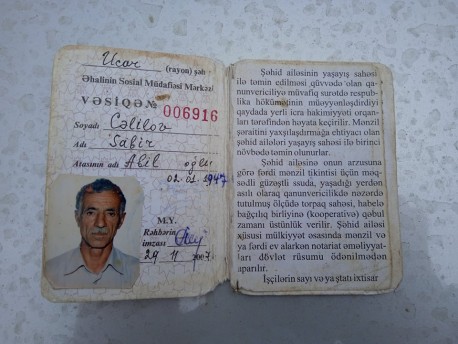 Ucar
(rayon) şəh
Əhalinin Sosial Müdafiəsi Mərkəzi
VƏSİQƏ № 006916
Soyadı Cəlilov
Adı Sabir
Atasının adı Abil oğlu
02.01.1947
M.Y.
Rəhbərin
imzası
29 11 2007
Şəhid ailəsinin yaşayış sahəsi
ilə təmin edilməsi qüvvədə olan qa-
nunvericiliyə müvafiq surətdə respub-
lika hökümətinin müəyyənləşdirdiyi
qaydada yerli icra hakimiyyəti orqan-
ları tərəfindən həyata keçirilir. Mənzil
şəraitini yaxşılaşdırmağa ehtiyacı olan
şəhid ailələri yaşayış sahəsi ilə birinci
növbədə təmin olunurlar.
Şəhid ailəsinə onun arzusuna
görə fərdi mənzil tikintisi üçün məq-
sədli güzəştli ssuda, yaşadığı yerdən
asılı olaraq qanunvericilikdə nəzərdə
tutulmuş ölçüdə torpaq sahəsi, habelə
bağçılıq birliyinə (kooperativə) qəbul
zamanı üstünlük verilir. Şəhid ailəsi
xüsusi mülkiyyət əsasında mənzil və
ya fərdi ev alarkən notariat əməliyyat-
ları dövlət rüsumu ödənilmədən
aparılır.
İşçilərin sayı və ya ştatı ixtisar